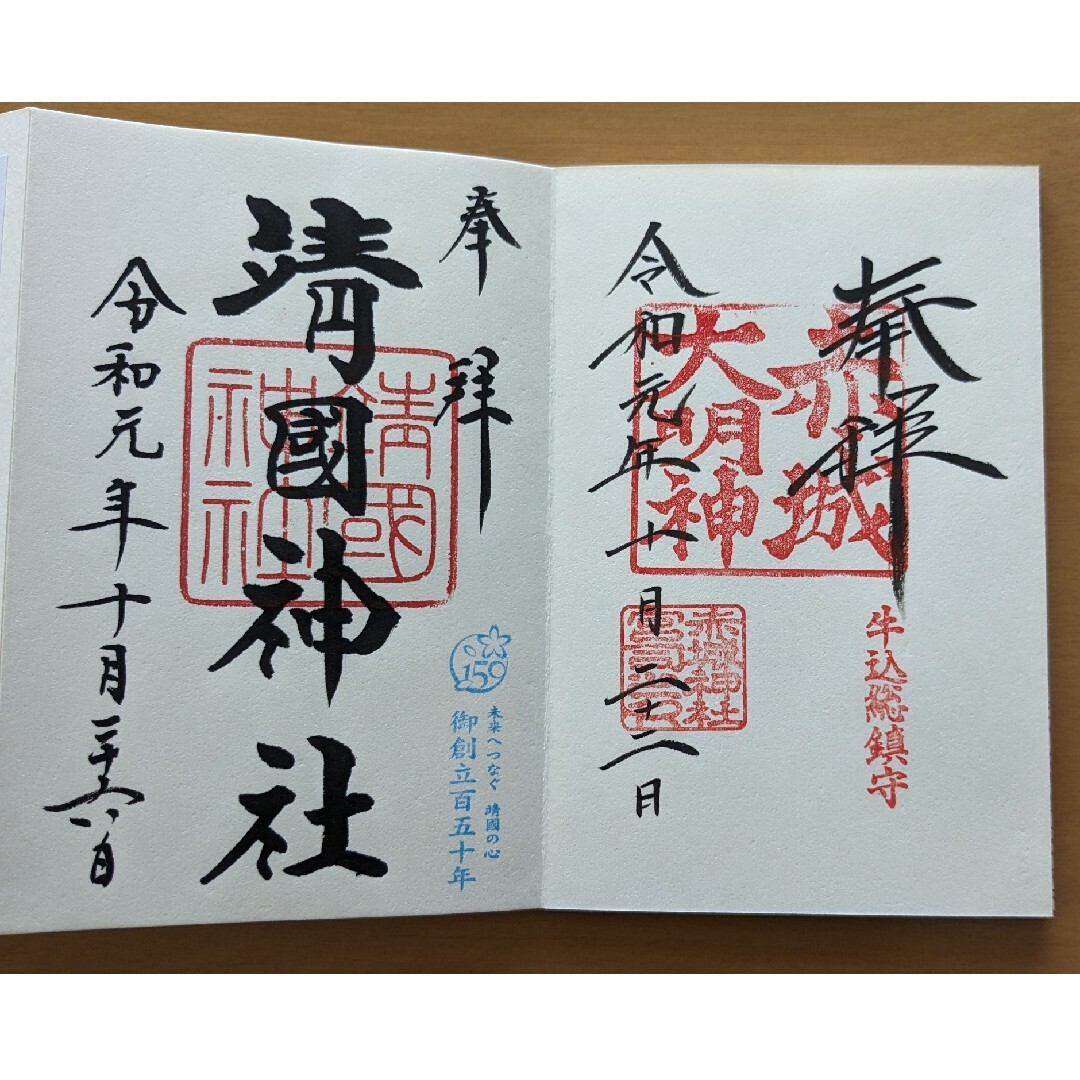 奉拝
赤城
大明神
牛込総鎮守
赤城神社
令和元年十月二十二日
奉拝
150
未来へつなぐ 靖國の心
御創立百五十年
靖國神社
靖國
神社
令和元年十月二十六日